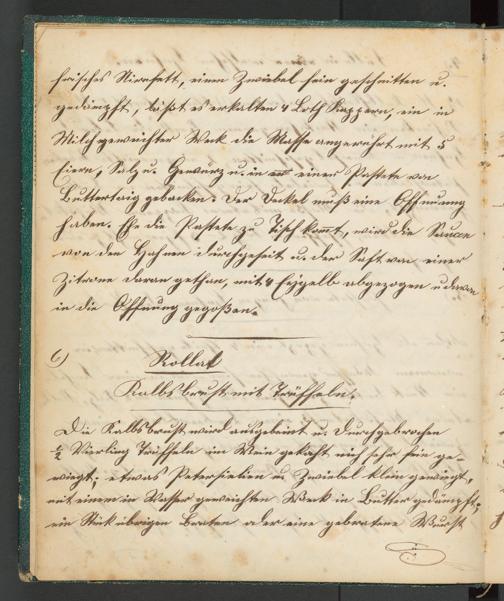 frisches Nierfett, einen Zwiebel fein geschnitten u.
gedämpft, läßt es erkalten 4 Loth Kappern, ein in
Milch geweichter Weck die Masse angerührt mit 5
Eiern, Salz u. Gewürz u. in einer Pastete von
Buttertaig gebacken. Der Deckel muß eine Öffnung
haben. Ehe die Pastete zu Tisch komt, wird die Sauce
von den Hahnen durchgeseit u. der Saft von einer
Zitrone daran gethan, mit 4 Eÿgelb abgezogen u davon
in die Öffnung gegoßen.
6)
Rollat
Kalbsbrust mit Trüffeln.
Die Kalbsbrust wird ausgebeint u. durchgebrochen
½ Vierling Trüffeln in Wein gekocht, nich sehr fein ge-
wiegt, etwas Petersielien u Zwiebel klein gewiegt,
mit einem in Wasser geweichten Weck in Butter gedämpft,
ein Stük übrigen Braten oder eine gebratene Wurst